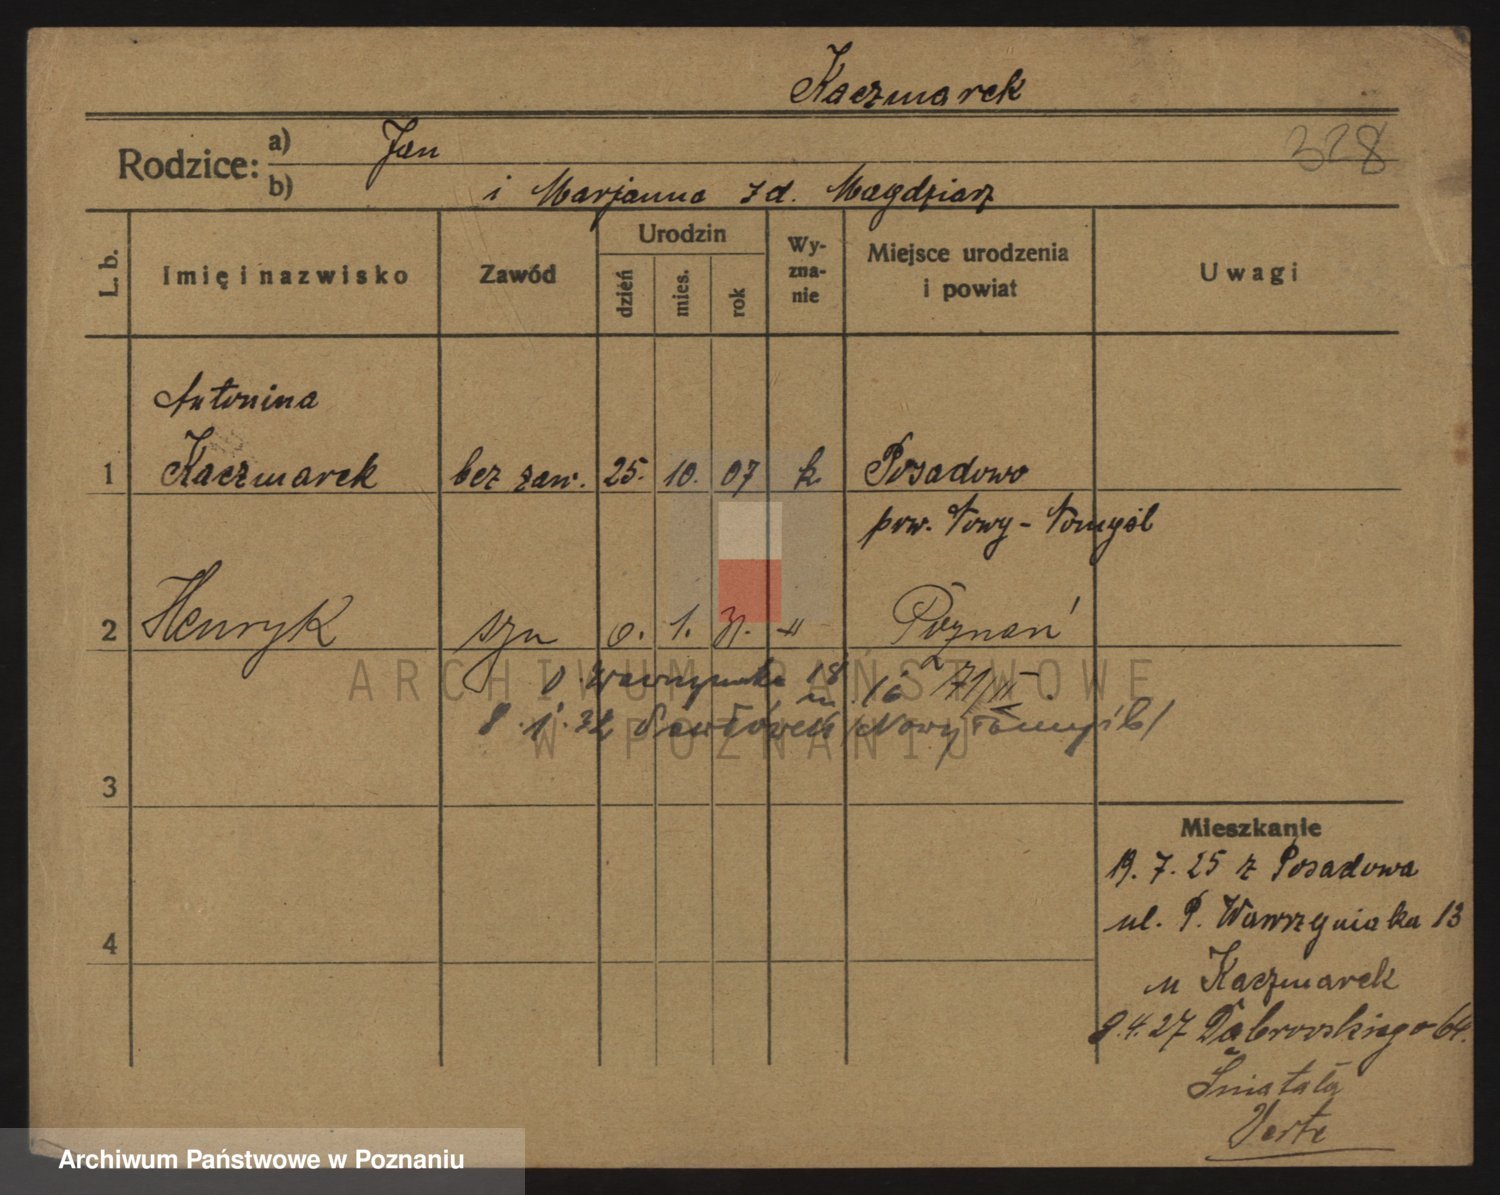 Kaczmarek
328
Rodzice: a) Jan
b) i Marjanna zd. Magdziarz
L. b.
Imię i nazwisko
Zawód
Urodzin
dzień
mies.
rok
Wy-
zna-
nie
Miejsce urodzenia
i powiat
Uwagi
Antonina
1 Kaczmarek bez zaw. 25. 10. 07 k Posadowo
pow. Nowy-Tomyśl
2 Henryk syn 1. 31. " Poznań
Wawrzyniaka 18 m. 16
8.1.32 (Nowy Tomyśl)
3
4
Mieszkanie
19.7.25 z Posadowa
ul. P. Wawrzyniaka 13
u Kaczmarek
9.4.27 Dąbrowskiego 64.
Śniatała
Verte
ARCHIWUM PAŃSTWOWE
W POZNANIU
Archiwum Państwowe w Poznaniu